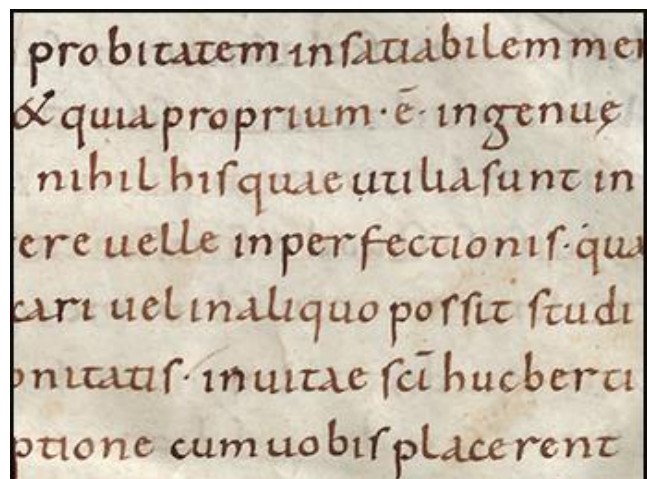 probitatem insatiabilem mer
& quia proprium · ē · ingenuę
nihil his quae utilia sunt in
ere uelle inperfectionis · qua
cari uel in aliquo possit studi
onitatis · in uitae sci̅ hucberti
ptione cum uobis placerent